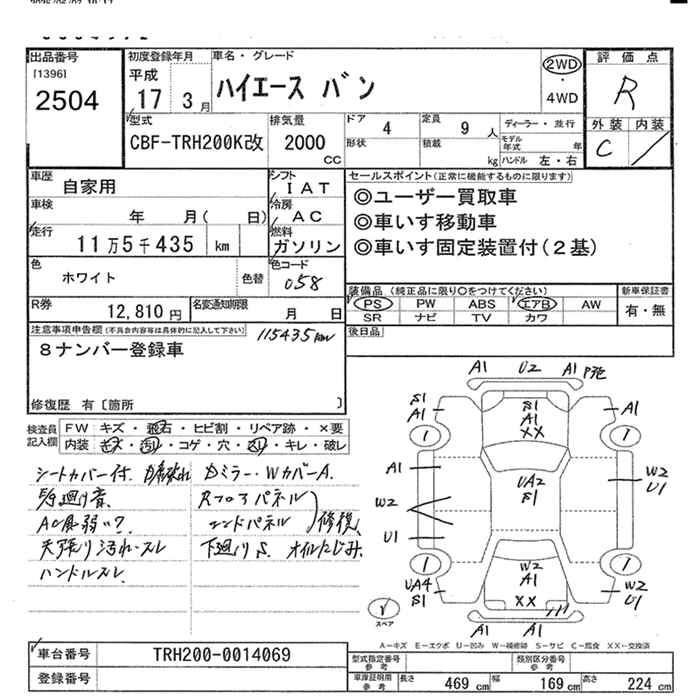 出品番号
[1396]
2504
初度登録年月
平成
17 3月
車名・グレード
ハイエース バン
2WD
・
4WD
評価点
R
外装 内装
C /
型式
CBF-TRH200K改
排気量
2000
CC
ドア
4
定員
9 人
形状
積載
kg
ディーラー・並行
モデル年式 年
ハンドル 左・右
車歴
自家用
シフト
IAT
車検
年 月( 日)
冷房
AC
走行
11万5千435 km
燃料
ガソリン
色
ホワイト
色替
色コード
058
R券
12,810円
名変通知期限
月 日
セールスポイント(正常に機能するものに限ります)
◎ユーザー買取車
◎車いす移動車
◎車いす固定装置付(2基)
装備品(純正品に限り〇をつけてください)
PS PW ABS エアB AW
SR ナビ TV カワ
新車保証書
有・無
後日品
注意事項申告欄(不具合内容等は具体的に記入して下さい)
115435km
8ナンバー登録車
修復歴 有〔箇所 〕
検査員記入欄
FW キズ・飛石・ヒビ割・リペア跡・×要
内装 キズ・汚れ・コゲ・穴・スリ・キレ・破レ
シートカバー付.
Dミラー・WカバーA.
Rフロアパネル
AC風弱い?
エンドパネル
修復
天張り汚れ・スレ
下廻りS. オイルにじみ.
ハンドルスレ.
A1 U2 A1
S1
A1
S1
A1
XX
A1
1 1
A1
UA2
S1
W2
U1
W2
U1
1 1
W2
A1
UA4
S1
XX
W2
U1
スペア
A-キズ E-エクボ U-凹み W-補修跡 S-サビ C-腐食 XX-交換済
車台番号
TRH200-0014069
登録番号
型式指定番号
参考
類別区分番号
参考
車庫証明用
参考
長さ 469 cm
幅 169 cm
高さ 224 cm